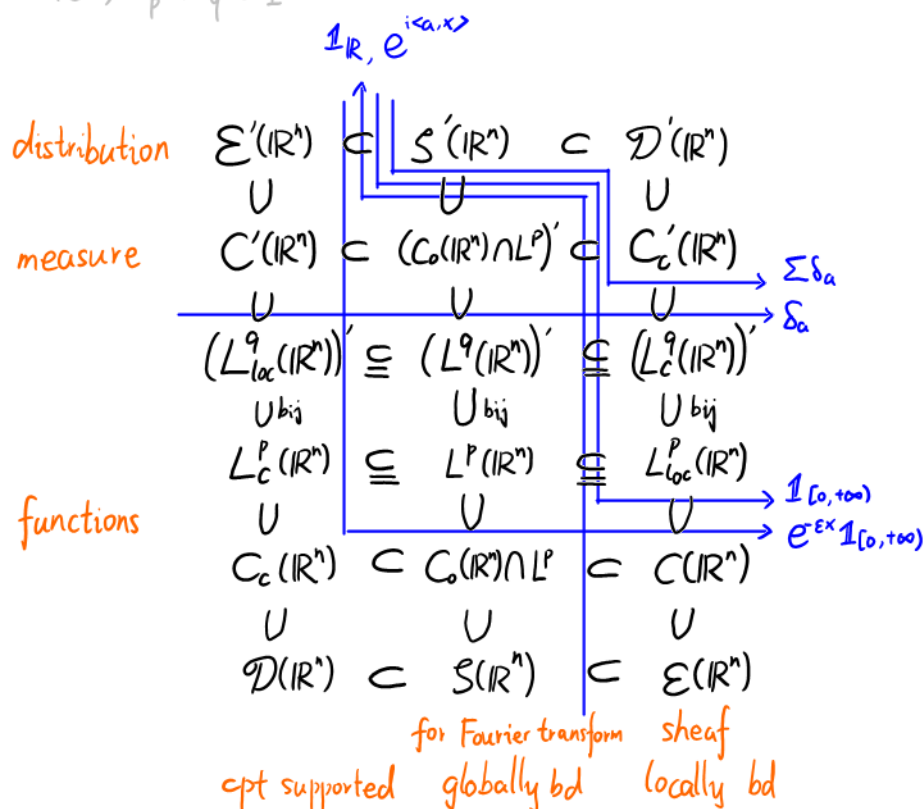 𝟙_ℝ, e^{i<a,x>}
distribution ℰ'(ℝⁿ) ⊂ 𝒮'(ℝⁿ) ⊂ 𝒟'(ℝⁿ)
∪ ∪ ∪
measure C'(ℝⁿ) ⊂ (C₀(ℝⁿ)∩L^p)' ⊂ C_c'(ℝⁿ)
Σδ_a
∪ ∪ ∪ δ_a
(L^q_{loc}(ℝⁿ))' ⊆ (L^q(ℝⁿ))' ⊆ (L^q_c(ℝⁿ))'
∪ bij ∪ bij ∪ bij
L^p_c(ℝⁿ) ⊆ L^p(ℝⁿ) ⊆ L^p_{loc}(ℝⁿ)
𝟙_{[0,+∞)}
functions ∪ ∪ ∪
e^{-εx}𝟙_{[0,+∞)}
C_c(ℝⁿ) ⊂ C₀(ℝⁿ)∩L^p ⊂ C(ℝⁿ)
∪ ∪ ∪
𝒟(ℝⁿ) ⊂ 𝒮(ℝⁿ) ⊂ ℰ(ℝⁿ)
for Fourier transform sheaf
cpt supported globally bd locally bd